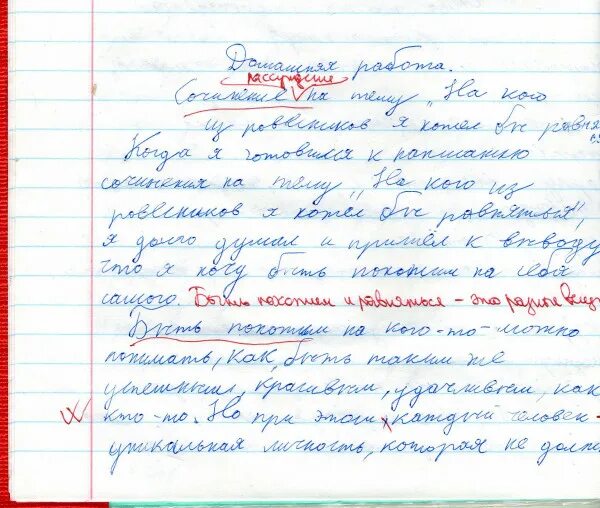 Домашняя работа.
рассуждение
Сочинение на тему „На кого
из ровесников я хотел бы равня
ться
Когда я готовился к написанию
сочинения на тему „На кого из
ровесников я хотел бы равняться",
я долго думал и пришёл к выводу,
что я хочу быть похожим на себя
самого. Быть похожим и равняться – это разные вещи
Быть похожим на кого-то – можно
понимать, как, быть таким же
успешным, красивым, удачливым, как
кто-то. Но при этом каждый человек –
уникальная личность, которая не должн